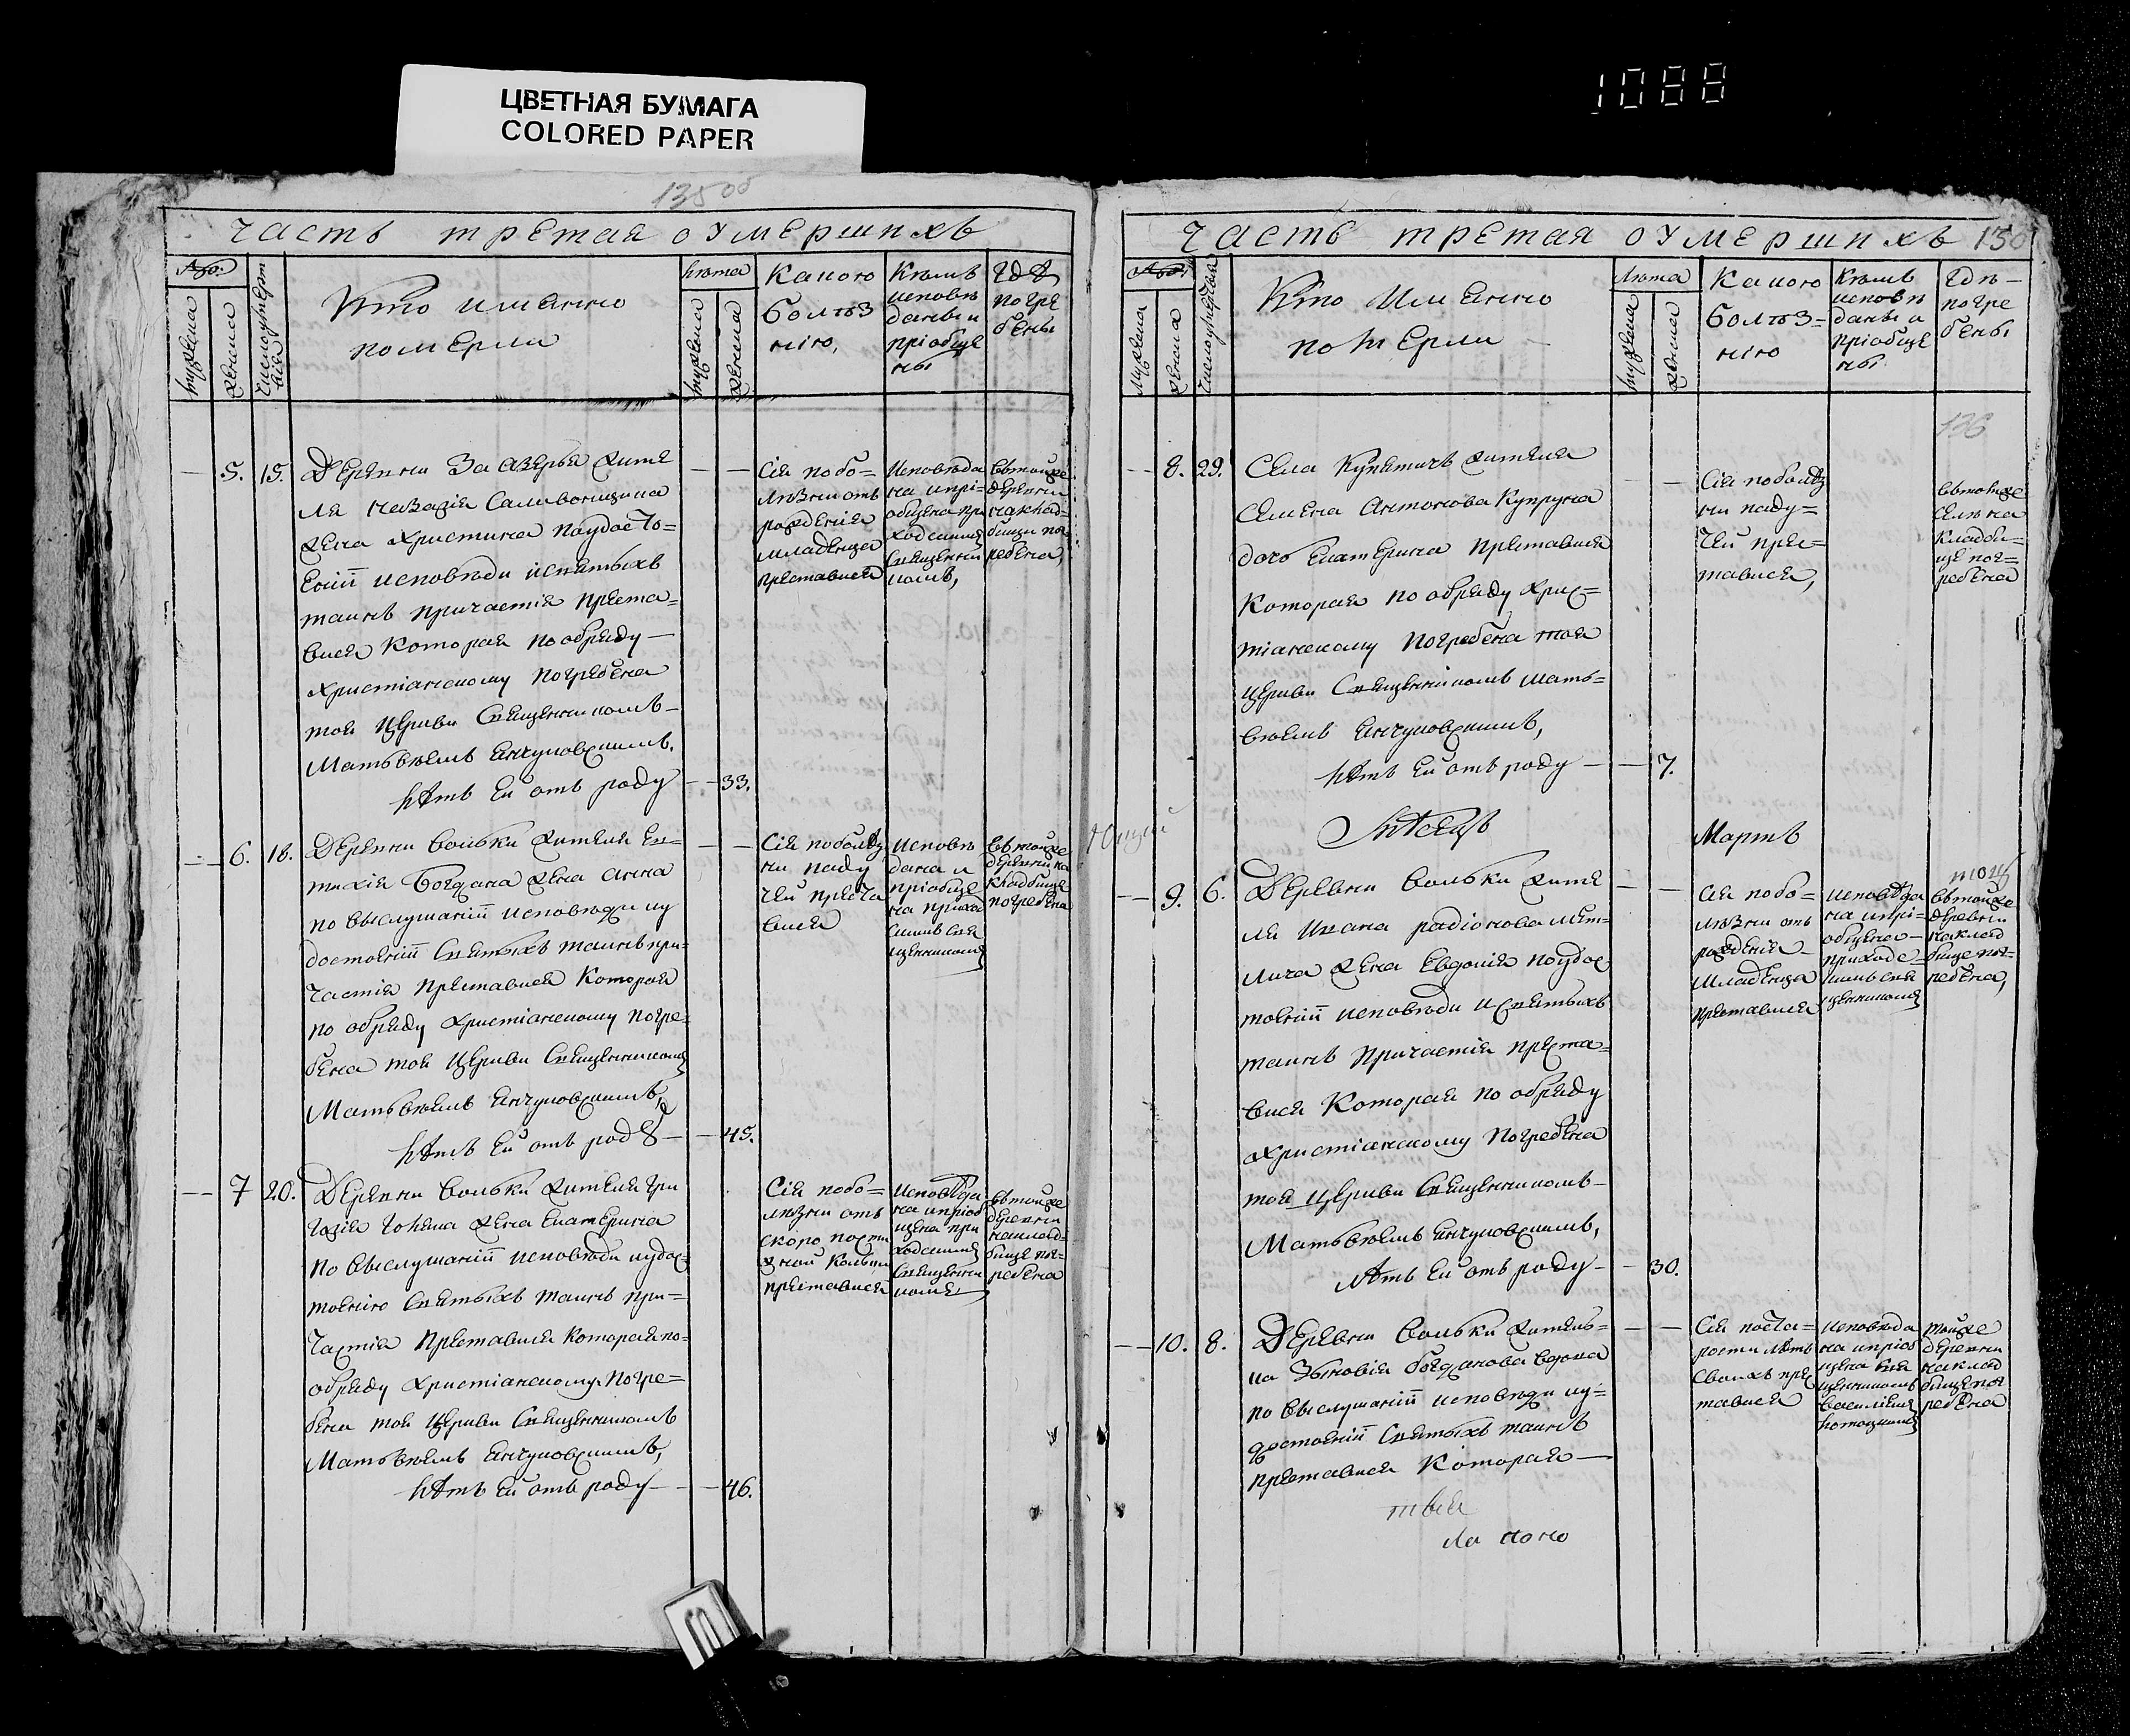 ЦВЕТНАЯ БУМАГА
COLORED PAPER
1088
13500
Часть третая оумершихъ
Кто именно
померли
Лѣта
Какою
болѣз
нію,
Кѣмъ
исповѣ
даны и
пріобще
ны
Гдѣ
погре
бены
мужеска
женска
5. 15.
Деревни Заозерья жите
жена Христина поудосто=
еніи исповѣди исвятыхъ
таинъ причастія преста=
вися которая пообряду
христіанскому погребена
тоя церкви священникомъ
Матьвѣемъ Янчуковскимъ.
Лѣтъ ей отъ роду 33.
Сія побо=
лѣзни отъ
рожденія
младенца
преставися
Исповѣда
на ипрі=
общена при
ходскимъ
священни
комъ,
втойже
деревни
накклад=
бищи пог=
ребена,
6. 18.
Деревни Вольки жителя Ев=
тихія Богдана жена Анна
по выслушаніи исповѣди иу
достоеніи святыхъ таинъ при=
частія преставися которая
по обряду христіанскому погре=
бена тоя церкви священникомъ
Матьвѣемъ Янчуковскимъ,
Лѣтъ ей отъ роду 45.
Сія поболѣз
ни паду
чей преста
вися
Исповѣ
дана и
пріобще
на приход
скимъ свя
щенникомъ
втойже
деревни на
кладбище
погребена
7 20.
Деревни Вольки жителя Гри
жена Екатерина
по выслушаніи исповѣди иудос
тоенію святыхъ таинъ при=
частія преставися которая по=
обряду христіанскому погре=
бена тоя церкви священникомъ
Матьвѣемъ Янчуковскимъ,
Лѣтъ ей отъ роду 46.
Сія побо=
лѣзни отъ
скоро пости
жной
преставися
Исповѣда
на ипріоб
щена при
ходскимъ
священни
комъ
втойже
деревни
наклад=
бище пог=
ребена
Часть третая оумершихъ 130
Кто именно
померли
Лѣта
Какою
болѣз=
нію
Кѣмъ
исповѣ
даны и
пріобще
ны
Гдѣ
погре
бены
мужеска
женска
136
8. 29.
Села Купятичъ жителя
Семена Антонова Купруна
дочь Екатерина преставися
которая по обряду хрис=
тіанскому погребена тоя
церкви священникомъ Мать=
вѣемъ Янчуковскимъ,
Лѣтъ ей отъ роду 7.
Сія поболѣз
ни паду=
чей прес=
тавися,
втомже
селѣ на
кладби=
ще пог=
ребена
Мѣсяцъ
Мартъ
9. 6.
Деревни Вольки жите
ля Ивана Радіонова
жена Евдокія поудос
тоеніи исповѣди исвятыхъ
таинъ причастія преста=
вися которая по обряду
христіанскому погребена
тоя церкви священникомъ
Матьвѣемъ Янчуковскимъ,
Лѣтъ ей отъ роду 30.
Сія побо=
лѣзни отъ
рожденія
младенца
преставися
исповѣда
на ипрі=
общена
приходс
кимъ свя
щенникомъ
втойже
деревни
наклад
бище пог=
ребена,
10. 8.
Деревни Вольки житель=
ка Зѣновія Богданова вдова
по выслушаніи исповѣди иу=
достоеніи святыхъ таинъ
преставися которая
Сія поста=
рости лѣтъ
своихъ прес
тавися
исповѣда
на ипріоб
щена свя
щенникомъ
тойже
деревни
наклад
бище пог
ребена